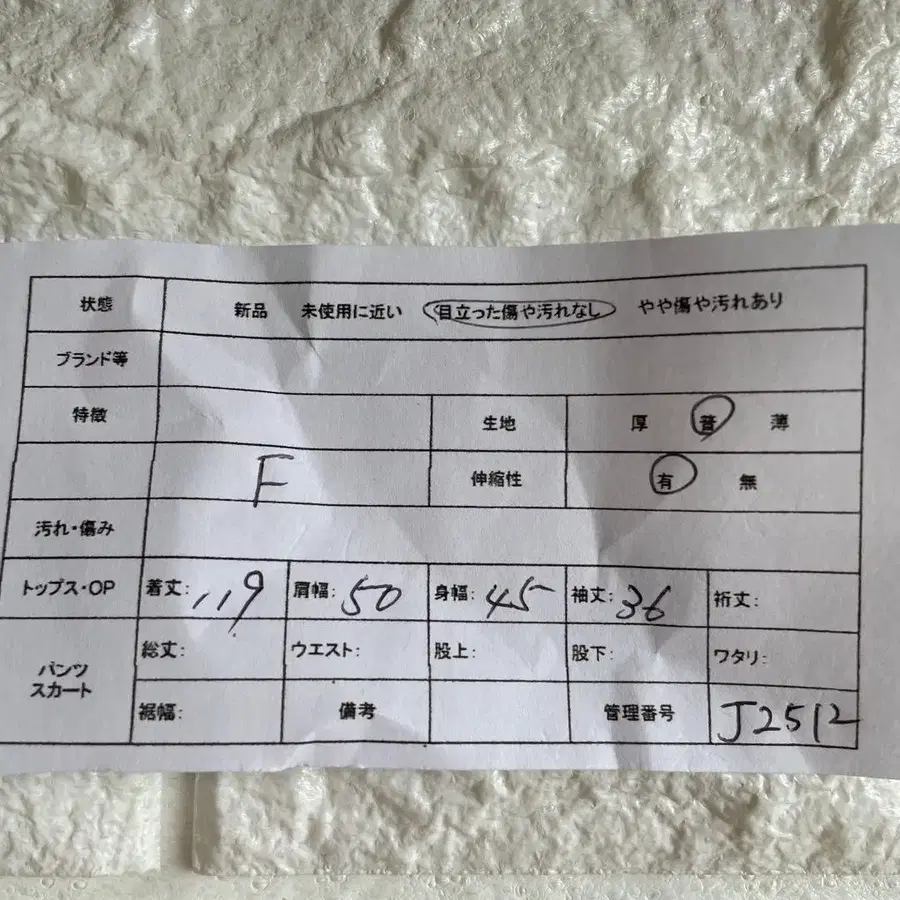 状態 新品 未使用に近い 目立った傷や汚れなし やや傷や汚れあり
ブランド等
特徴 生地 厚 普 薄
F 伸縮性 有 無
汚れ・傷み
トップス・OP 着丈: 119 肩幅: 50 身幅: 45 袖丈: 36 裄丈:
パンツ
スカート
総丈: ウエスト: 股上: 股下: ワタリ:
裾幅: 備考 管理番号 J2512